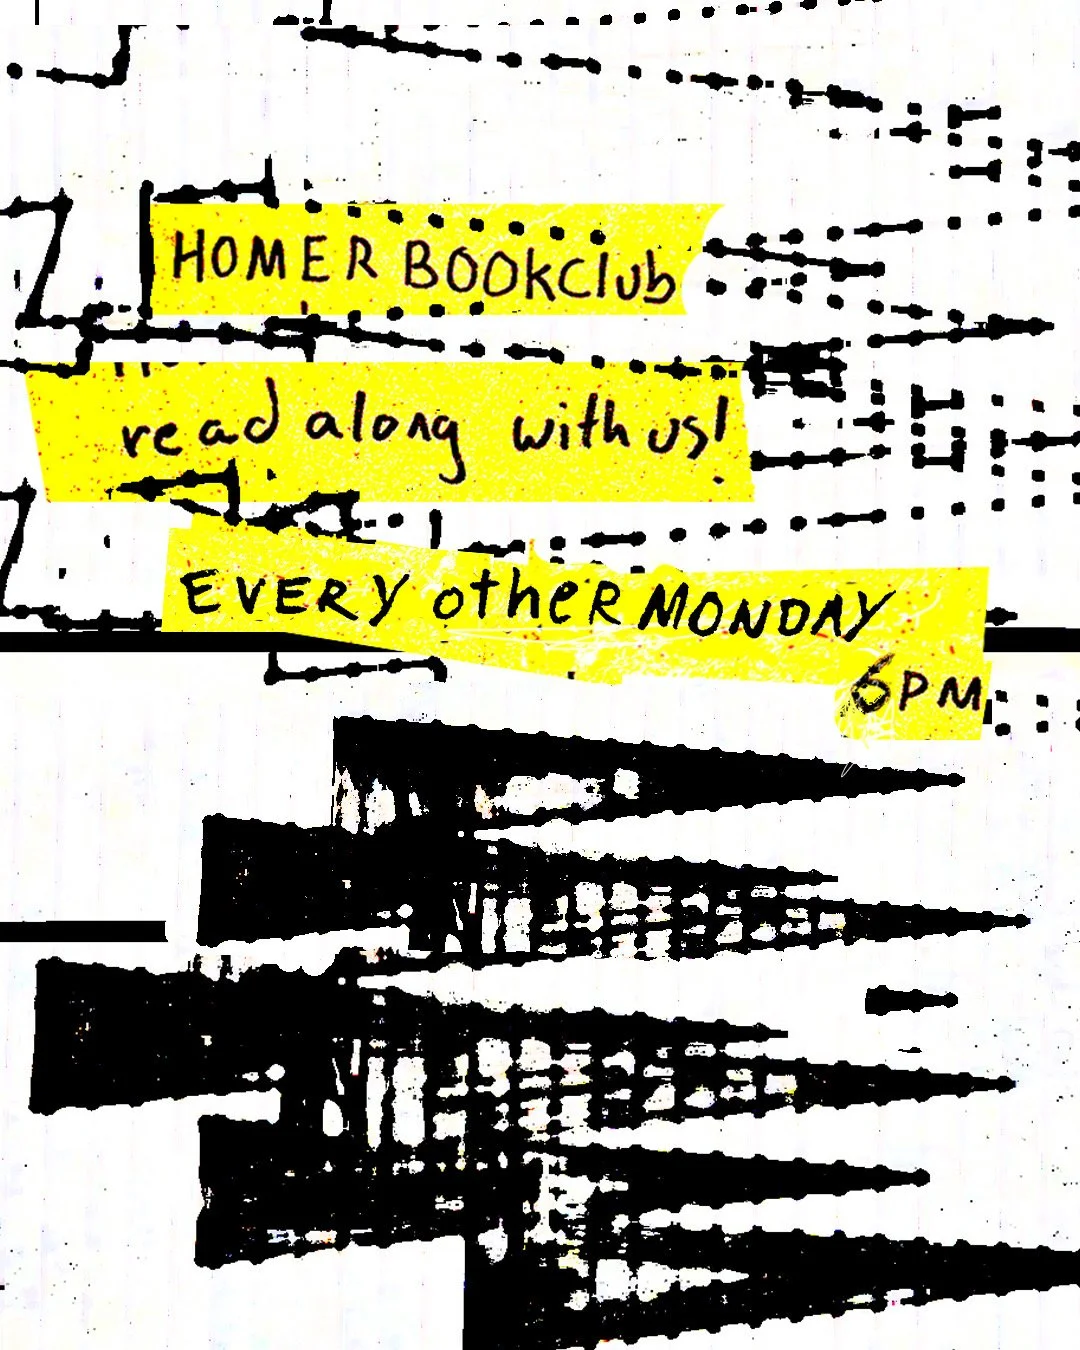 HOMER BOOKClub
read along with us!
EVERY otheR MONDAY
6PM